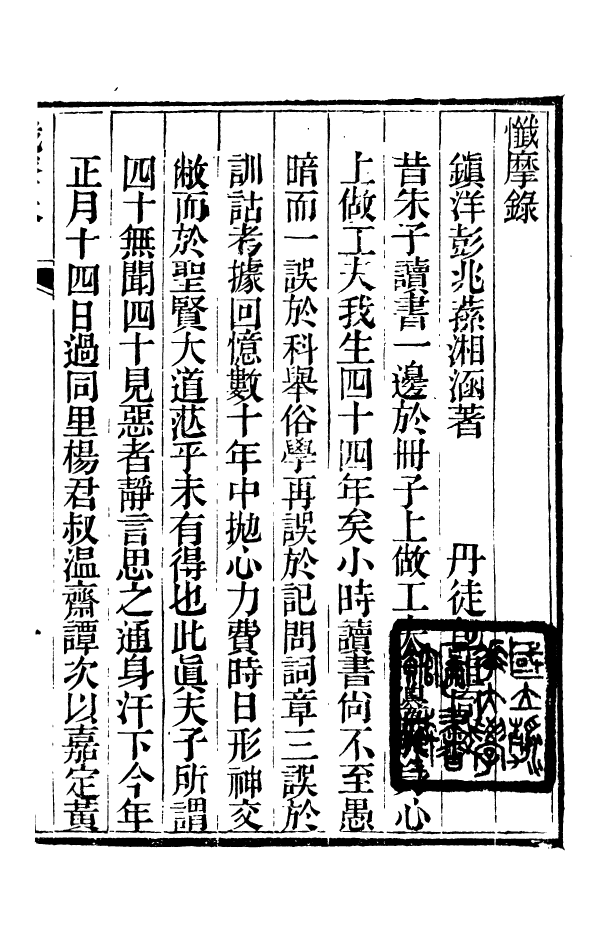 懺摩錄
鎮洋彭兆蓀湘涵著　丹徒
昔朱子讀書一邊於冊子上做工夫一邊於心
上做工夫我生四十四年矣小時讀書尙不至愚
暗而一誤於科舉俗學再誤於記問詞章三誤於
訓詁考據回憶數十年中拋心力費時日形神交
敝而於聖賢大道茫乎未有得也此眞夫子所謂
四十無聞四十見惡者靜言思之通身汗下今年
正月十四日過同里楊君叔温齋譚次以嘉定黃